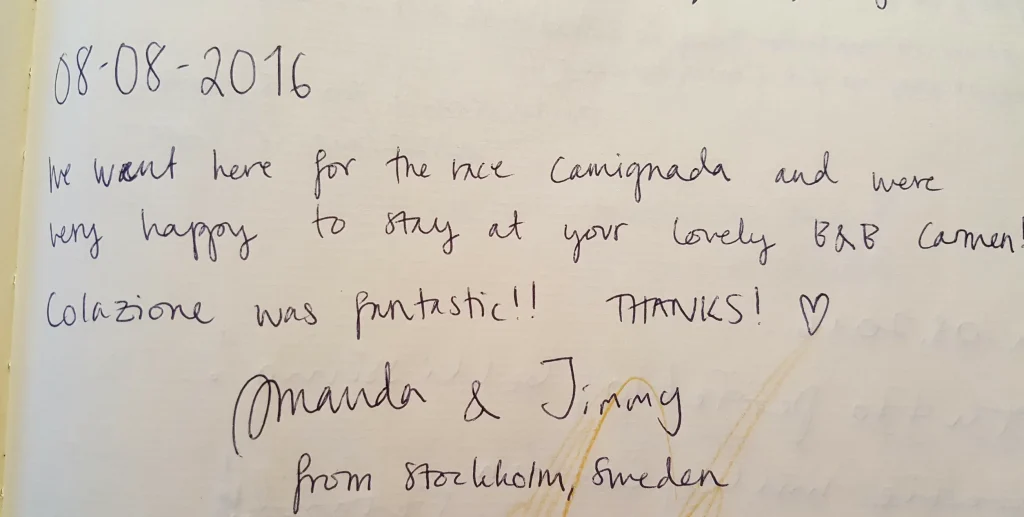 08-08-2016
We went here for the race Camignada and were
very happy to stay at your lovely B&B Carmen!
Colazione was fantastic!! THANKS! ♡
Amanda & Jimmy
from Stockholm, Sweden